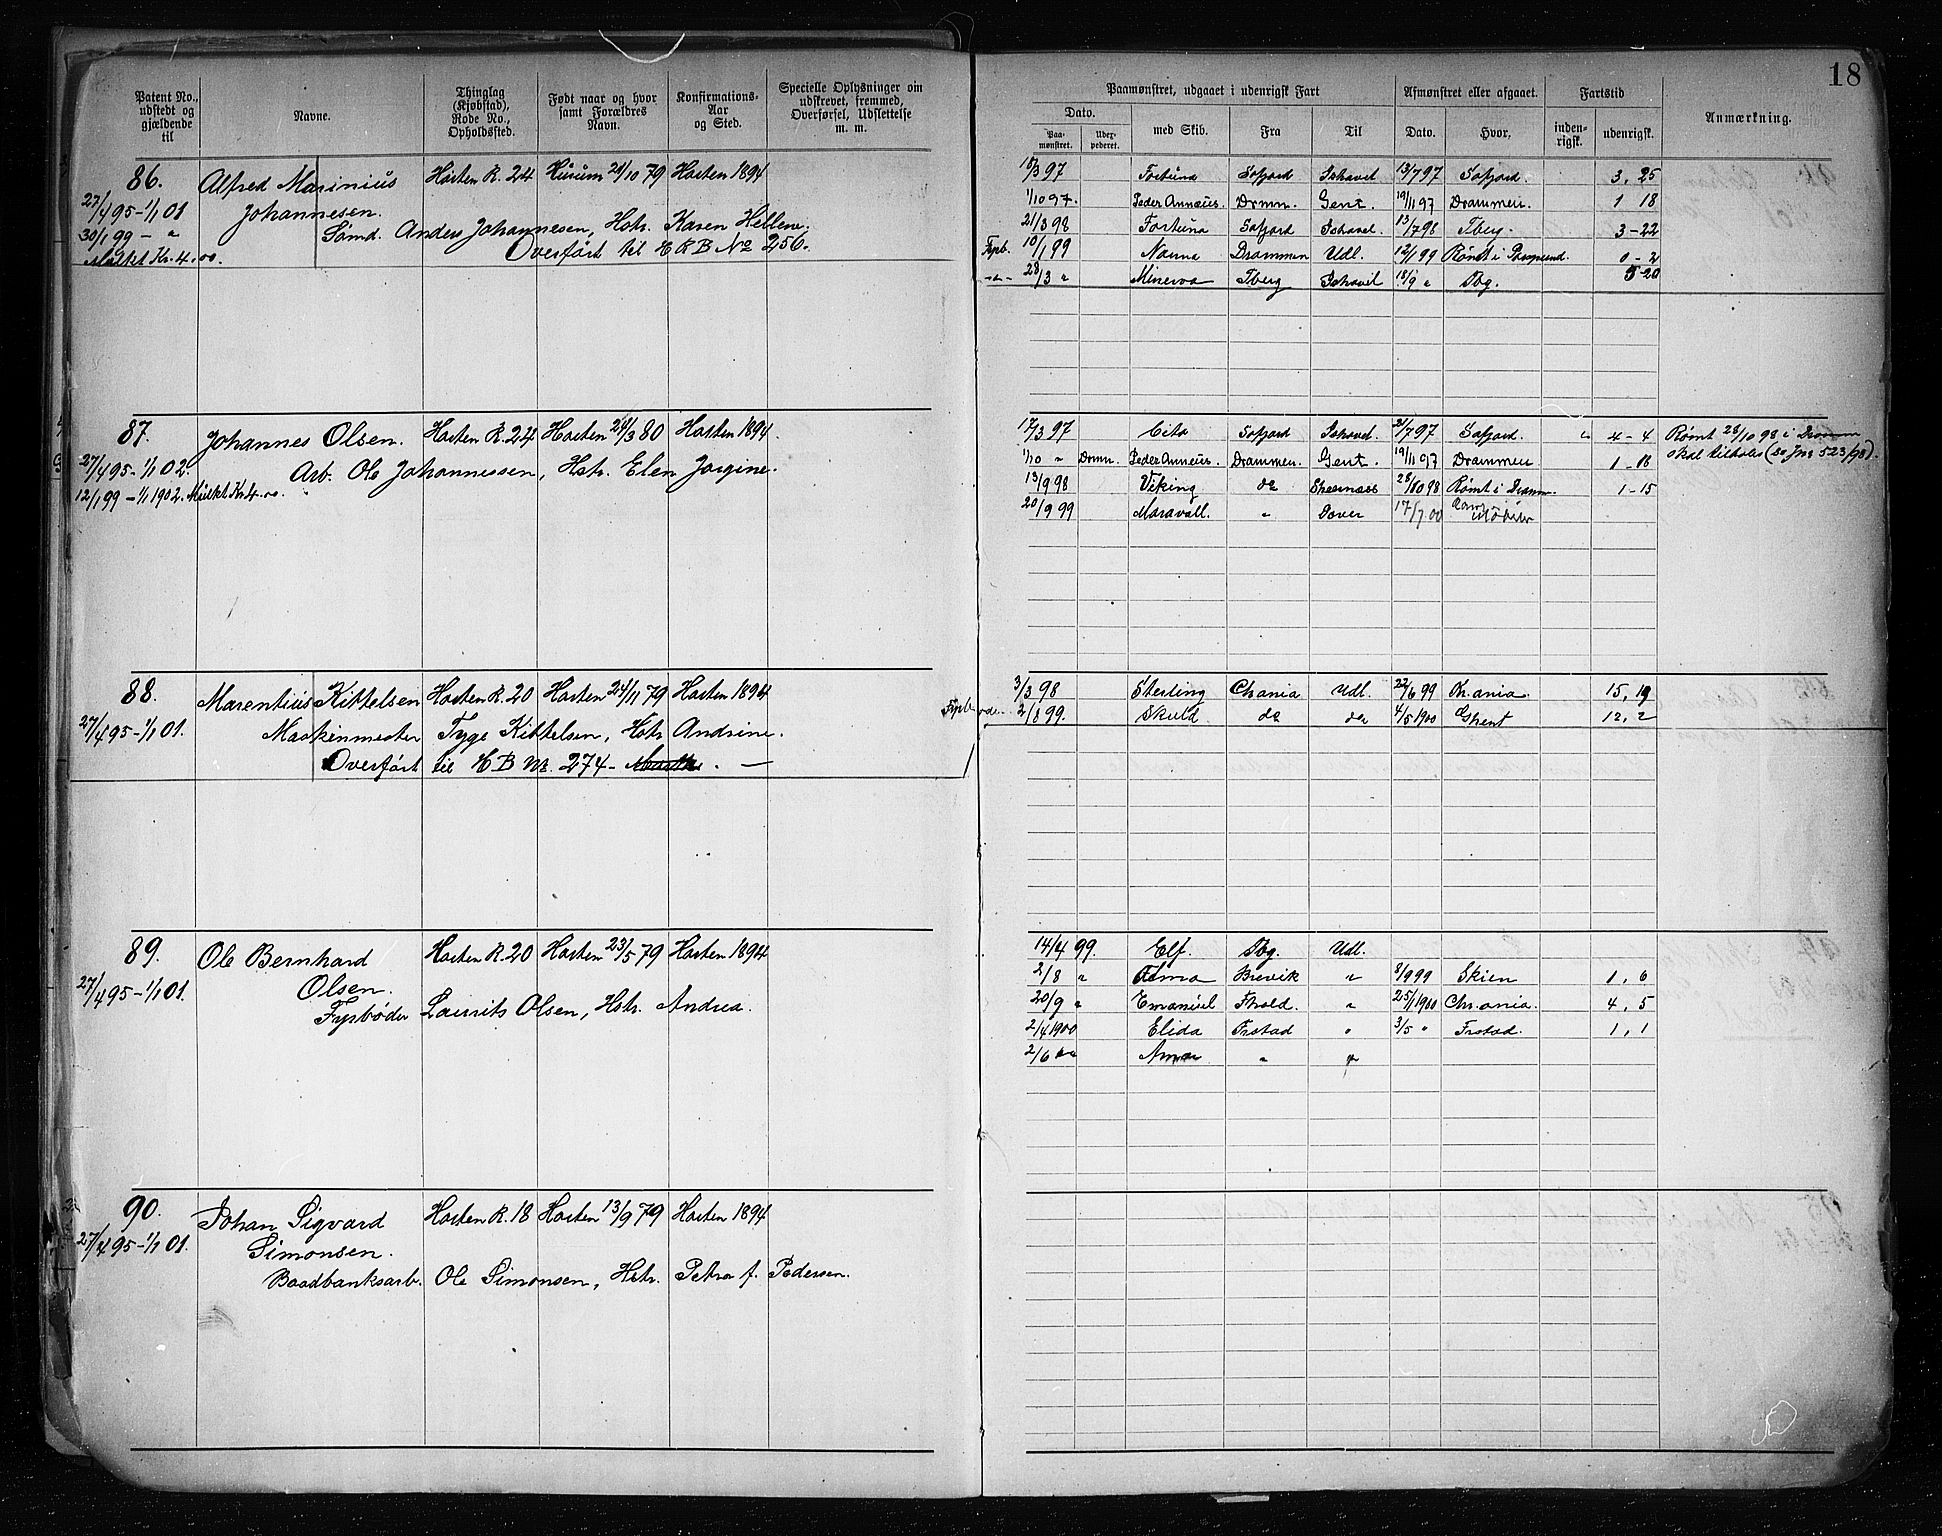 18
Patent No., udstedt og gjældende til
Navne.
Thinglag (Kjøbstad), Rode No., Opholdssted.
Født naar og hvor samt Forældres Navn.
Konfirmations-Aar og Sted.
Specielle Oplysninger om udskrevet, fremmed, Overførsel, Udslettelse m. m.
Paamønstret, udgaaet i udenrigsk Fart
Afmønstret eller afgaaet.
Fartstid
Anmærkning.
Dato.
Paa-mønstret.
med Skib.
Fra
Til
Dato.
Hvor,
inden-rigsk.
udenrigsk.
86. Alfred Marinius Horten R. 24 Husum 21/10 79 Horten 1894
27/4 95-1/1 01 Johannesen.
30/1 99 - " Sømd. Anders Johannesen, Hstr. Karen Hellene.
Mulkt Kr. 4.00. Overført til H R B No 256.
3 97 Fortuna Sofjord 13/7 97 Sofjord. 3, 25
1/10 97. Peder Anneus. Drmn. Gent. 19/11 97 Drammen. 1 18
21/3 98 Fortuna Sofjord 13/7 98 Tberg. 3-22
Fyrb. 10/1 99 Norma Drammen Udl. 12/1 99 Rømt i 0-2
-"- 28/3 " Minerva Tberg 18/9 " Tbg. 5-20
87. Johannes Olsen. Horten R. 24 Horten 24/3 80 Horten 1894.
27/4 95-1/1 02 Arb. Ole Johannessen, Hstr. Elen Jorgine.
12/1 99 - 1/1 1902. Mulkt Kr. 4.00.
17/3 97 Cito Sofjord 21/7 97 Sofjord. 4-4 Rømt 28/10 98 i Dramm
1/10 " Drmn. Peder Anneus. Drammen. Gent. 19/11 97 Drammen 1-18 skal tiltales (se Jno 523/98).
13/9 98 Viking do Sheerness 28/10 98 Rømt i Dramm. 1-15
20/9 99 Maravall. " Dover 17/7 00
88. Marentius Kittelsen Horten R. 20 Horten 24/11 79 Horten 1894
27/4 95-1/1 01. Maskinmester Tyge Kittelsen, Hstr Andrine.
Overført til H B Nr. 274-
3/3 98 Sterling Chania Udl. 22/6 99 Krania. 15, 19
2/8 99. Skuld do do 4/5 1900 Ghent 12, 2
89. Ole Bernhard Horten R. 20 Horten 23/5 79 Horten 1894
27/4 95-1/1 01. Olsen.
Fyrbøder Laurits Olsen, Hstr. Andrea.
14/4 99. Elf. Tbg. Udl.
2/8 " Alma Brevik " 8/9 99 Skien 1, 6
20/9 " Emanuel Fhold. " 25/1 1900 Chrania. 4, 5
2/4 1900 Elida Frstad " 3/5 " Frstad. 1, 1
2/6 " " "
90. Johan Sigvard Horten R. 18 Horten 13/9 79 Horten 1894
27/4 95-1/1 01. Simonsen.
Baadbanksarb. Ole Simonsen, Hstr. Petra f. Pedersen.